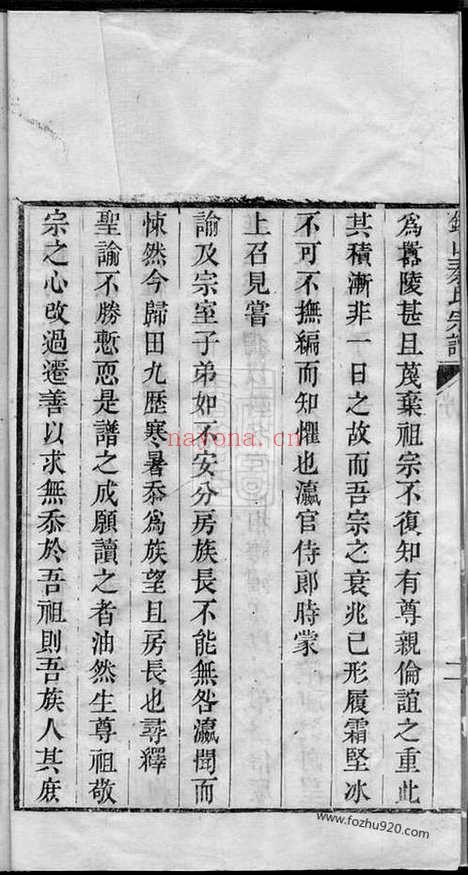 爲囂陵甚且蔑棄祖宗不復知有尊親倫誼之重此
其積漸非一日之故而吾宗之衰兆已形履霜堅冰
不可不撫編而知懼也瀛官侍郎時蒙
上召見嘗
諭及宗室子弟如不安分房族長不能無咎瀛聞而
悚然今歸田九歷寒暑忝爲族望且房長也尋繹
聖諭不勝慙恧是譜之成願讀之者油然生尊祖敬
宗之心改過遷善以求無忝於吾祖則吾族人其庶
nayona.cn
www.fozhu920.com